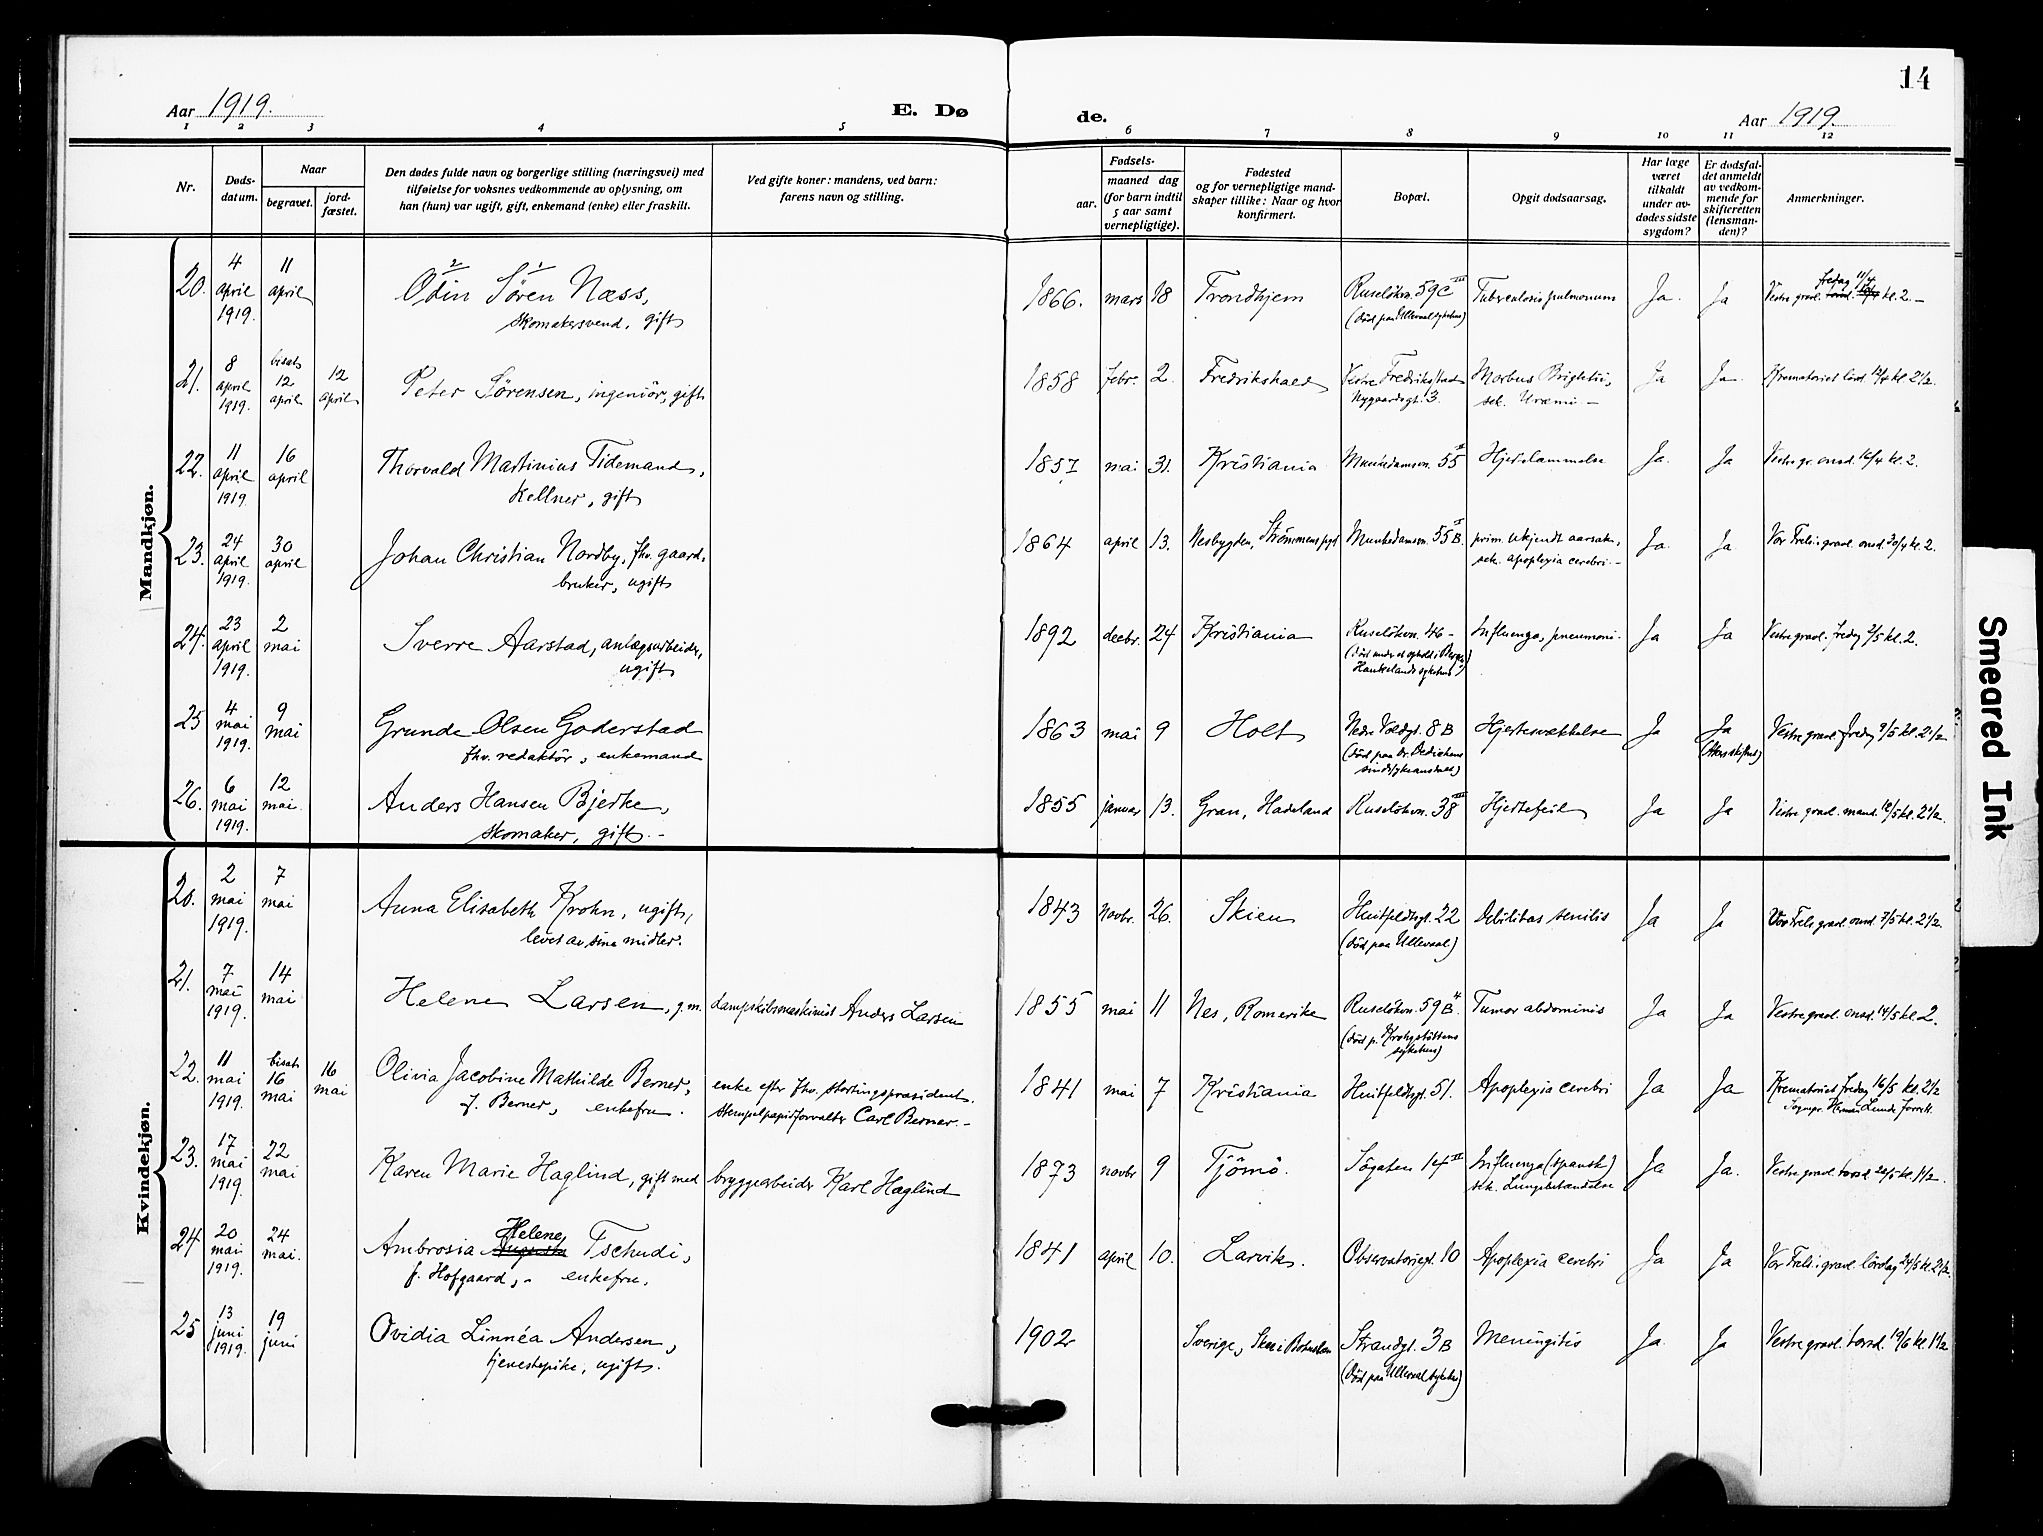 14
Aar 1919.
E. Dø
de.
Aar 1919.
1 2 3 4 5 6 7 8 9 10 11 12
Nr.
Døds-
datum.
Naar
begravet.
jord-
fæstet.
Den dødes fulde navn og borgerlige stilling (næringsvei) med
tilføielse for voksnes vedkommende av oplysning, om
han (hun) var ugift, gift, enkemand (enke) eller fraskilt.
Ved gifte koner: mandens, ved barn:
farens navn og stilling.
Fødsels-
aar.
maaned dag
(for barn indtil
5 aar samt
vernepligtige).
Fødested
og for vernepligtige mand-
skaper tillike: Naar og hvor
konfirmert.
Bopæl.
Opgit dødsaarsag.
Har læge
været
tilkaldt
under av-
dødes sidste
sygdom?
Er dødsfal-
det anmeldt
av vedkom-
mende for
skifteretten
(lensman-
den)?
Anmerkninger.
Mandkjøn.
20. 4 april 1919. 11 april
2 1
Odin Søren Næss,
skomakersvend, gift
1866. mars 18 Trondhjem Ruseløkvn. 59c III Tuberculosis pulmonum Ja. Ja
(død paa Ullevaal sykehus)
Vestre gravl. fredag 11/4 kl. 2.—
21. 8 april 1919. bisat 12 april 12 april
Peter Sørensen, ingeniør, gift
1858 febr. 2. Fredrikshald Vestre Fredrikstad Morbus Brightii, Ja Ja.
Nygaardsgt. 3. sek. Uræmi.—
Krematoriet lørd. 12/4 kl. 2 1/2.
22. 11 april 1919. 16 april
Thorvald Martinius Tidemand,
kellner, gift
1857 mai 31. Kristiania Munkedamsvn. 55 II Hjertelammelse Ja. Ja Vestre gr. onsd. 16/4 kl. 2.
23. 24 april 1919. 30 april
Johan Christian Nordby, fhv. gaard-
bruker, ugift
1864 april 13. Nesbygden, Strømmens prgd. Munkedamsvn. 55 B. I prim. ukjendt aarsak, Ja. Ja.
sek. apoplexia cerebri.—
Vor Frels. gravl. onsd. 30/4 kl. 2.
24. 23 april 1919. 2 mai
Sverre Aarstad, anlægsarbeider,
ugift
1892 decbr. 24 Kristiania Ruseløkvn. 46 - Influenza, pneumoni. Ja Ja
(død under et ophold i Bergen
Haukelands sykehus)
Vestre gravl. fredag 2/5 kl. 2.
25 4 mai 1919. 9 mai
Grunde Olsen Goderstad
fhv. redaktør, enkemand
1863 mai 9 Holt Nedre Voldgt. 8 B Hjertesvækkelse Ja Ja
(død paa Dr. Dedichens
sindssykeanstalt)
Vestre gravl. fredag 9/5 kl. 2 1/2
26. 6 mai 1919. 12 mai.
Anders Hansen Bjerke,
skomaker, gift.—
1855 januar 13. Gran, Hadeland Ruseløkvn. 38 III Hjertefeil Ja Ja Vestre gravl. mand. 12/5 kl. 2 1/2.
Kvindekjøn.
20. 2 mai 1919. 7 mai
Anna Elisabeth Krohn, ugift,
levet av sine midler.
1843 Novbr. 26. Skien Huitfeldtsgt. 22 Debilitas senilis Ja Ja
(død paa Ullevaal)
Vor Frels. gravl. onsd. 7/5 kl. 2 1/2.
21. 7 mai 1919. 14 mai
Helene Larsen, g. m. dampskibsmaskinist Anders Larsen
1855 mai 11 Nes, Romerike Ruseløkvn. 59 B. 4 Tumor abdominis Ja Ja
(død p. Krohgstøttens
sykehus)
Vestre gravl. onsd. 14/5 kl. 2.
22. 11 mai 1919. bisat 16 mai 16 mai
Olivia Jacobine Mathilde Berner,
f. Berner, enkefru.
enke efter fhv. stortingspræsident,
stempelpapirforvalter Carl Berner.—
1841 mai 7 Kristiania Huitfeldtsgt. 51. Apoplexia cerebri Ja Ja
Krematoriet fredag 16/5 kl. 2 1/2
Sognepr. Herman Lunde forrett.
23. 17 mai 1919. 22 mai
Karen Marie Haglind, gift med bryggearbeider Karl Haglind
1873 novbr 9 Tjømø. Søgaten 14 II Influenza (spansk) Ja Ja.
sek. Lungebetændelse
Vestre gravl. torsd. 22/5 kl. 1 1/2.
24 20 mai 1919. 24 mai.
Helene
Ambrosia Augusta Tschudi,
f. Hofgaard,- enkefru.
1841 april 10. Larvik. Observatoriegt. 10 Apoplexia cerebri Ja Ja Vor Frels. gravl. lørdag 24/5 kl. 2 1/2.
25 13 juni 1919. 19 juni
Ovidia Linnéa Andersen,
tjenestepike, ugift.
1902 Sverige, Skee i Bohuslen Strandgt. 3 B Meningitis Ja. Ja
(død paa Ullevaal sykehus)
Vestre gravl. torsd. 19/6 kl. 1 1/2
Smeared Ink